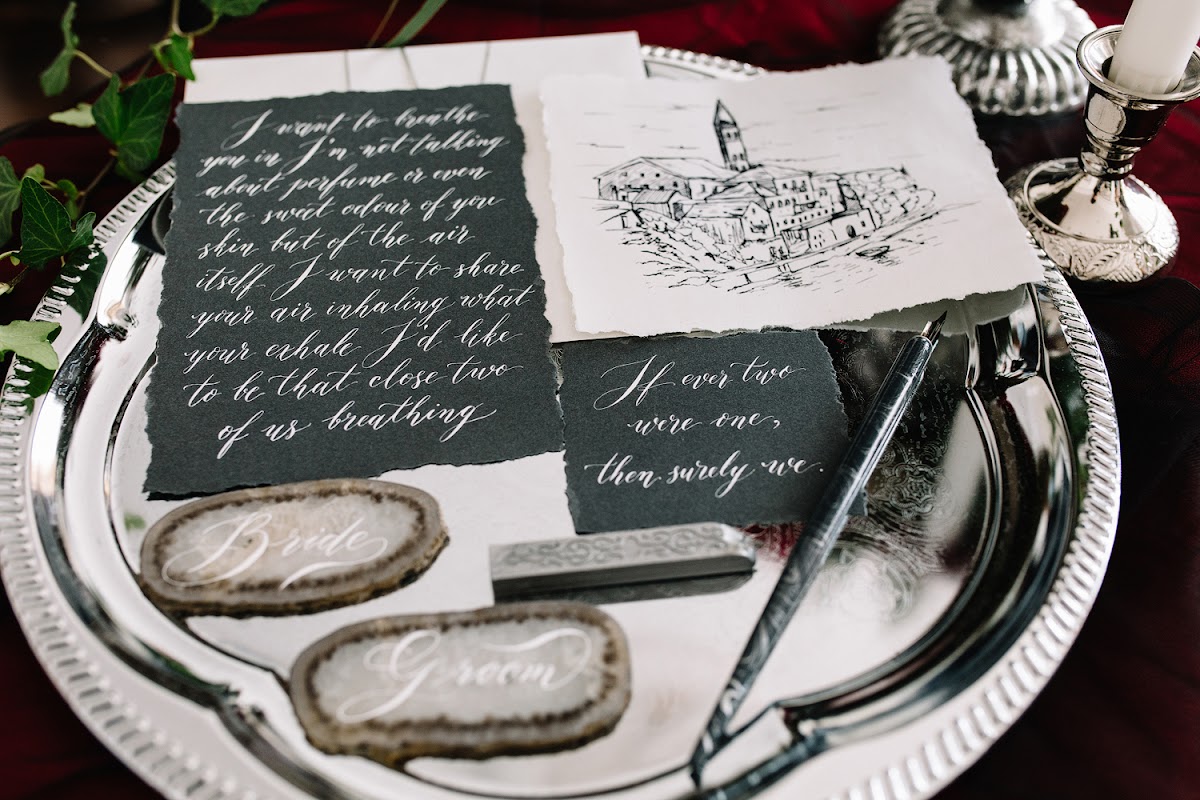 I want to breathe
you in I'm not talking
about perfume or even
the sweet odour of you
skin but of the air
itself I want to share
your air inhaling what
your exhale I'd like
to be that close two
of us breathing
If ever two
were one,
then surely we.
Bride
Groom